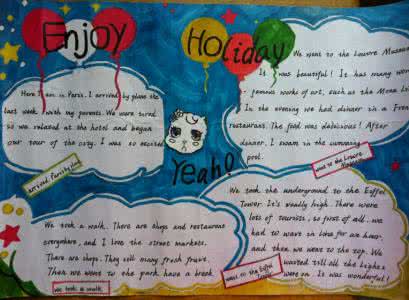 Enjoy Holiday
Here I am in Paris. I arrived by plane the
last week, with my parents. We were tired
so we relaxed at the hotel and began
our tour of the city. I was so excited
arrived Paris by plane
We went to the Louvre Museum
It was beautiful! It has many
famous works of art, such as the Mona Lisa
In the evening we had dinner in a French
restaurant. The food was delicious! After
dinner, I swam in the swimming
pool.
went to the Louvre Museum
Yeah!
We took a walk. There are shops and restaurants
everywhere, and I love the street markets.
There are shops. They sell many fresh
Then we went to the park have a break.
We took a walk
We took the underground to the Eiffel
Tower. It's really high. There were
lots of tourists, so first of all, we
had to wait in line for an hour,
and then we went to the top. We
waited till all the lights
were on. It was wonderful!
went to the Eiffel Tower